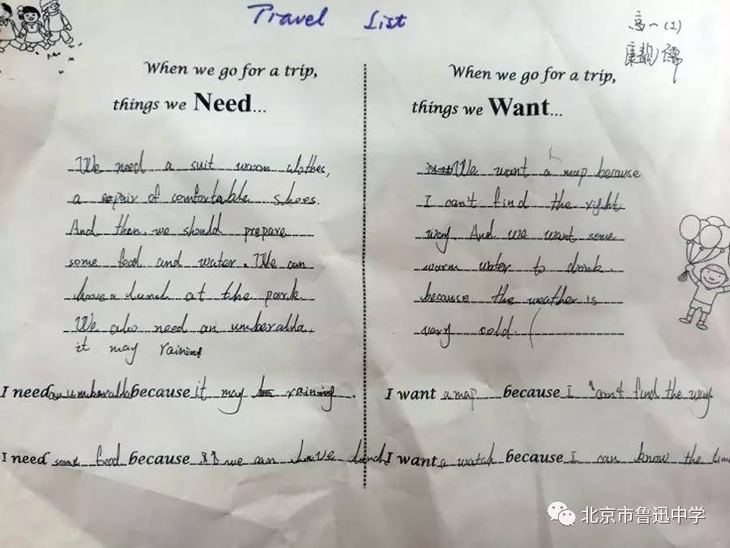 Travel List
高一(2)
When we go for a trip,
things we Need...
We need a suit warm clothes,
a pair of comfortable shoes.
And then we should prepare
some food and water. We can
have a lunch at the park.
We also need an umberalda.
it may raining
I need an umberalda because it may raining.
I need some food because we can have lunch
When we go for a trip,
things we Want...
We want a map because
I can't find the right
way. And we want some
warm water to drink.
because the weather is
very cold.
I want a map because I can't find the way
I want a watch because I can know the time
北京市鲁迅中学